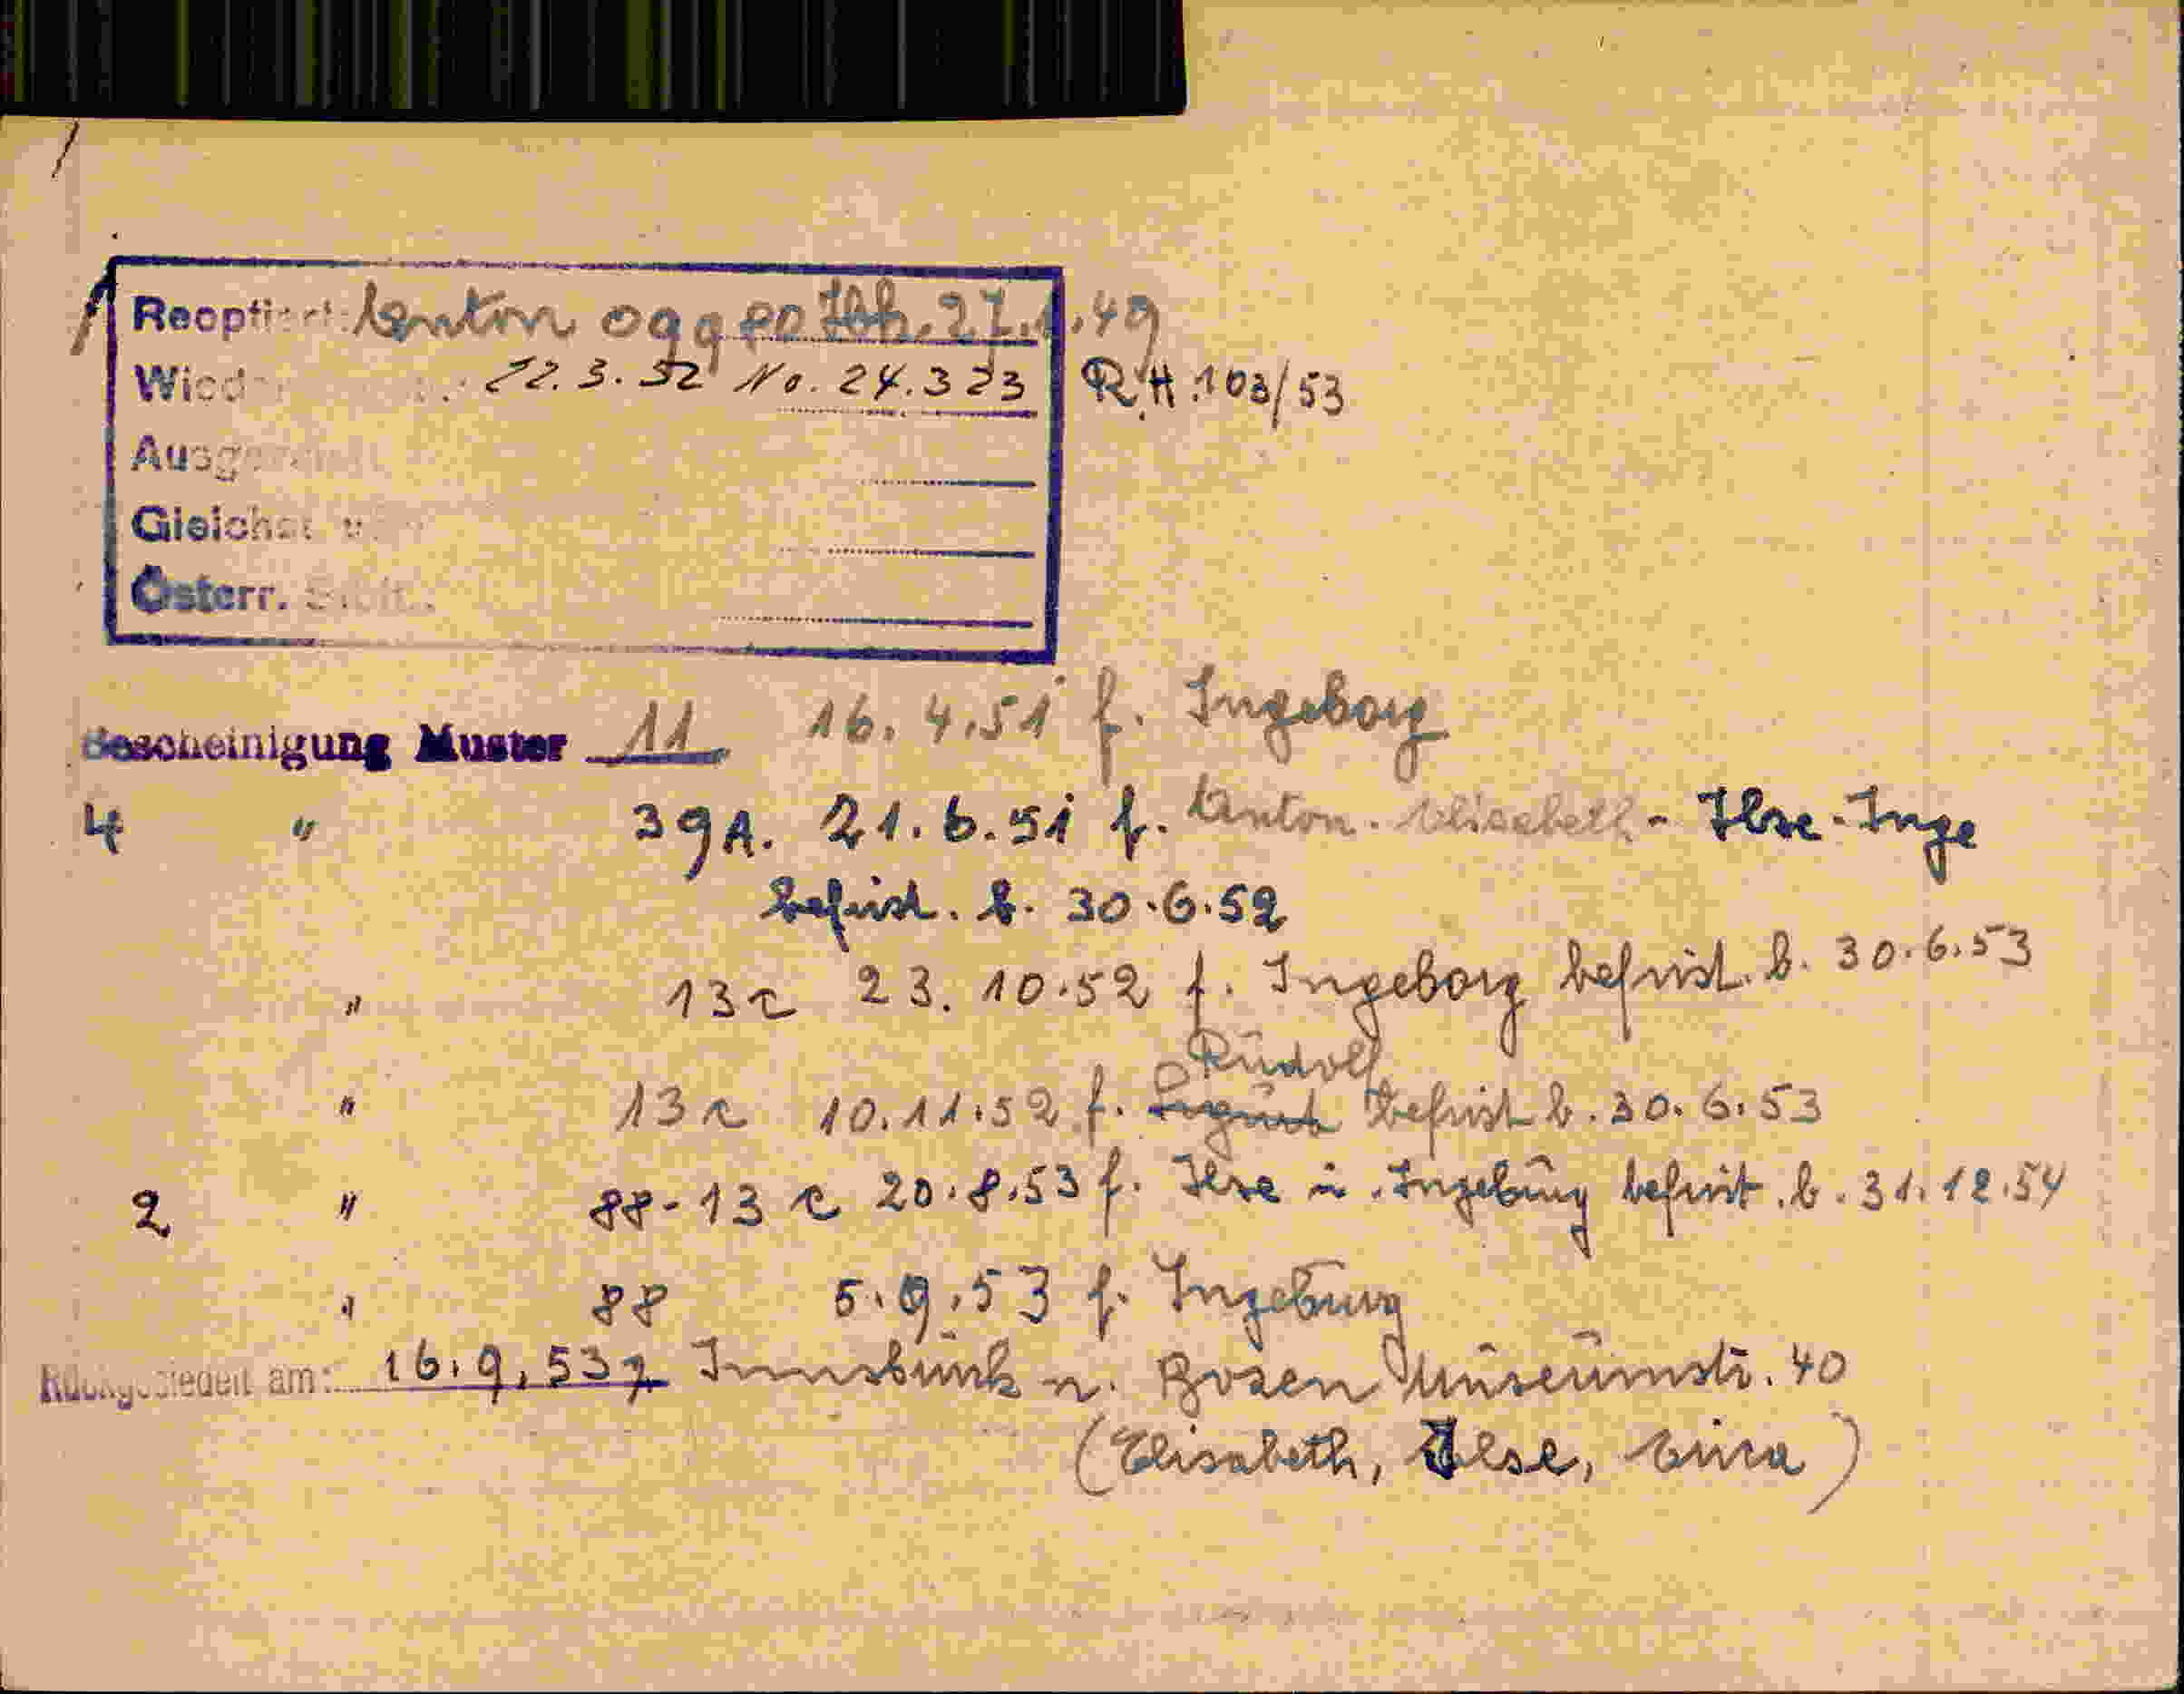 Reoptiert: Anton 099 80 Ibk. 27.1.49
Wied 22.3.52 No. 24.323 R.H. 103/53
Ausge
Gleichst
Österr.
Bescheinigung Muster 11 16.4.51 f. Ingeborg
4 " 39A. 21.6.51 f. Anton - Elisabeth - Ilse - Inge
befrist. b. 30.6.52
" 13c 23.10.52 f. Ingeborg befrist. b. 30.6.53
Rudolf
" 13c 10.11.52 f. befrist b. 30.6.53
2 " 88-13c 20.8.53 f. Ilse u. Ingeburg befrist. b. 31.12.54
" 88 5.9.53 f. Ingeburg
Rückgesiedelt am: 16.9.53 Innsbruck n. Bozen Museumstr. 40
(Elisabeth, Ilse, )